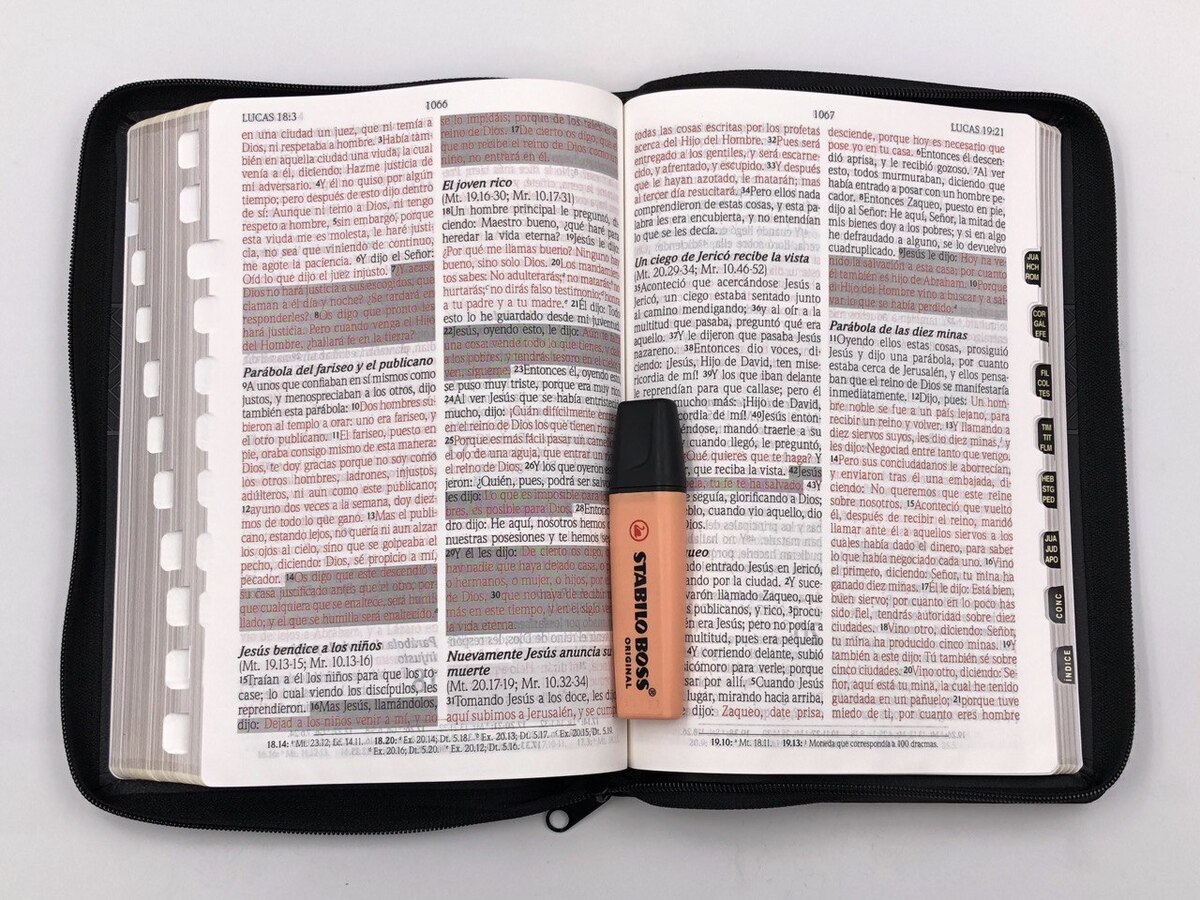 LUCAS 18:3
1066
en una ciudad un juez, que ni temía a
Dios, ni respetaba a hombre. 3Había tam-
bién en aquella ciudad una viuda, la cual
venía a él, diciendo: Hazme justicia de
mi adversario. 4Y él no quiso por algún
tiempo; pero después de esto dijo dentro
de sí: Aunque ni temo a Dios, ni tengo
respeto a hombre, 5sin embargo, porque
esta viuda me es molesta, le haré justi-
cia, no sea que viniendo de continuo,
me agote la paciencia. 6Y dijo el Señor:
Oíd lo que dijo el juez injusto. 7¿Y acaso
Dios no hará justicia a sus escogidos, que
claman a él día y noche? ¿Se tardará en
responderles? 8Os digo que pronto les
hará justicia. Pero cuando venga el Hijo
del Hombre, ¿hallará fe en la tierra?
Parábola del fariseo y el publicano
9A unos que confiaban en sí mismos como
justos, y menospreciaban a los otros, dijo
también esta parábola: 10Dos hombres su-
bieron al templo a orar: uno era fariseo, y
el otro publicano. 11El fariseo, puesto en
pie, oraba consigo mismo de esta manera:
Dios, te doy gracias porque no soy como
los otros hombres, ladrones, injustos,
adúlteros, ni aun como este publicano;
12ayuno dos veces a la semana, doy diez-
mos de todo lo que gano. 13Mas el publi-
cano, estando lejos, no quería ni aun alzar
los ojos al cielo, sino que se golpeaba el
pecho, diciendo: Dios, sé propicio a mí,
pecador. 14Os digo que este descendió a
su casa justificado antes que el otro; por-
que cualquiera que se enaltece, será humi-
llado; y el que se humilla será enaltecido.
Jesús bendice a los niños
(Mt. 19.13-15; Mr. 10.13-16)
15Traían a él los niños para que los to-
case; lo cual viendo los discípulos, les
reprendieron. 16Mas Jesús, llamándolos,
dijo: Dejad a los niños venir a mí, y no
se lo impidáis; porque de los tales es el
reino de Dios. 17De cierto os digo, que el
que no recibe el reino de Dios como un
niño, no entrará en él.
El joven rico
(Mt. 19.16-30; Mr. 10.17-31)
18Un hombre principal le preguntó, di-
ciendo: Maestro bueno, ¿qué haré para
heredar la vida eterna? 19Jesús le dijo:
¿Por qué me llamas bueno? Ninguno hay
bueno, sino solo Dios. 20Los mandamientos
sabes: No adulterarás; no matarás; no
hurtarás; no dirás falso testimonio; honra
a tu padre y a tu madre. 21Él dijo: Todo
esto lo he guardado desde mi juventud.
22Jesús, oyendo esto, le dijo: Aún te falta
una cosa: vende todo lo que tienes, y da
a los pobres, y tendrás tesoro en el cielo;
ven, sígueme. 23Entonces él, oyendo esto,
se puso muy triste, porque era muy rico.
24Al ver Jesús que se había entristecido
mucho, dijo: ¡Cuán difícilmente
en el reino de Dios los que tienen
25Porque es más fácil pasar un camello
de una aguja, que entrar un
el reino de Dios. 26Y los que oyeron
jeron: ¿Quién, pues, podrá ser salvo?
les dijo: Lo que es imposible para
bres, es posible para Dios. 28Entonces
dro dijo: He aquí, nosotros hemos
nuestras posesiones y te hemos
29Y él les dijo: De cierto os digo,
hay nadie que haya dejado casa, o
o hermanos, o mujer, o hijos, por
de Dios, 30que no haya de recibir
más en este tiempo, y en el siglo
la vida eterna.
Nuevamente Jesús anuncia su
muerte
(Mt. 20.17-19; Mr. 10.32-34)
31Tomando Jesús a los doce, les dijo:
aquí subimos a Jerusalén, y se cum
18.14: a Mt. 23.12; Lc. 14.11. 18.20: b Ex. 20.14; Dt. 5.18. c Ex. 20.13; Dt. 5.17. d Ex. 20.15; Dt. 5.19.
e Ex. 20.16; Dt. 5.20. f Ex. 20.12; Dt. 5.16.
1067
LUCAS 19:21
todas las cosas escritas por los profetas
acerca del Hijo del Hombre. 32Pues será
entregado a los gentiles, y será escarne-
cido, y afrentado, y escupido. 33Y después
que le hayan azotado, le matarán; mas
al tercer día resucitará. 34Pero ellos nada
comprendieron de estas cosas, y esta pa-
labra les era encubierta, y no entendían
lo que se les decía.
Un ciego de Jericó recibe la vista
(Mt. 20.29-34; Mr. 10.46-52)
35Aconteció que acercándose Jesús a
Jericó, un ciego estaba sentado junto
al camino mendigando; 36y al oír a la
multitud que pasaba, preguntó qué era
aquello. 37Y le dijeron que pasaba Jesús
nazareno. 38Entonces dio voces, di-
ciendo: ¡Jesús, Hijo de David, ten mise-
ricordia de mí! 39Y los que iban delante
le reprendían para que callase; pero él
mucho más: ¡Hijo de David,
cordia de mí! 40Jesús enton
éndose, mandó traerle a su
y cuando llegó, le preguntó,
¿Qué quieres que te haga? Y
r, que reciba la vista. 42Jesús
bela, tu fe te ha salvado. 43Y
e seguía, glorificando a Dios;
eblo, cuando vio aquello, dio
Dios.
queo
entrado Jesús en Jericó,
ando por la ciudad. 2Y suce-
varón llamado Zaqueo,
publicanos, y rico, 3procu-
era Jesús; pero no podía a
multitud, pues era pequeño
4Y corriendo delante, subió
icómoro para verle; porque
sar por allí. 5Cuando Jesús
lugar, mirando hacia arriba,
dijo: Zaqueo, date prisa,
desciende, porque hoy es necesario que
pose yo en tu casa. 6Entonces él descen-
dió aprisa, y le recibió gozoso. 7Al ver
esto, todos murmuraban, diciendo que
había entrado a posar con un hombre pe-
cador. 8Entonces Zaqueo, puesto en pie,
dijo al Señor: He aquí, Señor, la mitad de
mis bienes doy a los pobres; y si en algo
he defraudado a alguno, se lo devuelvo
cuadruplicado. 9Jesús le dijo: Hoy ha ve-
nido la salvación a esta casa; por cuanto
él también es hijo de Abraham. 10Porque
el Hijo del Hombre vino a buscar y a sal-
var lo que se había perdido.
Parábola de las diez minas
11Oyendo ellos estas cosas, prosiguió
Jesús y dijo una parábola, por cuanto
estaba cerca de Jerusalén, y ellos pensa-
ban que el reino de Dios se manifestaría
inmediatamente. 12Dijo, pues: Un hom-
bre noble se fue a un país lejano, para
recibir un reino y volver. 13Y llamando a
diez siervos suyos, les dio diez minas, y
les dijo: Negociad entre tanto que vengo.
14Pero sus conciudadanos le aborrecían,
y enviaron tras él una embajada, di-
ciendo: No queremos que este reine
sobre nosotros. 15Aconteció que vuelto
él, después de recibir el reino, mandó
llamar ante él a aquellos siervos a los
cuales había dado el dinero, para saber
lo que había negociado cada uno. 16Vino
el primero, diciendo: Señor, tu mina ha
ganado diez minas. 17Él le dijo: Está bien,
buen siervo; por cuanto en lo poco has
sido fiel, tendrás autoridad sobre diez
ciudades. 18Vino otro, diciendo: Señor,
tu mina ha producido cinco minas. 19Y
también a este dijo: Tú también sé sobre
cinco ciudades. 20Vino otro, diciendo: Se-
ñor, aquí está tu mina, la cual he tenido
guardada en un pañuelo; 21porque tuve
miedo de ti, por cuanto eres hombre
19.10: a Mt. 18.11. 19.13: 1 Moneda que correspondía a 100 dracmas.
STABILO BOSS®
ORIGINAL
JUA
HCH
ROM
COR
GÁL
EFE
FIL
COL
TES
TIM
TIT
FLM
HEB
STG
PED
JUA
JUD
APO
CONC
ÍNDICE